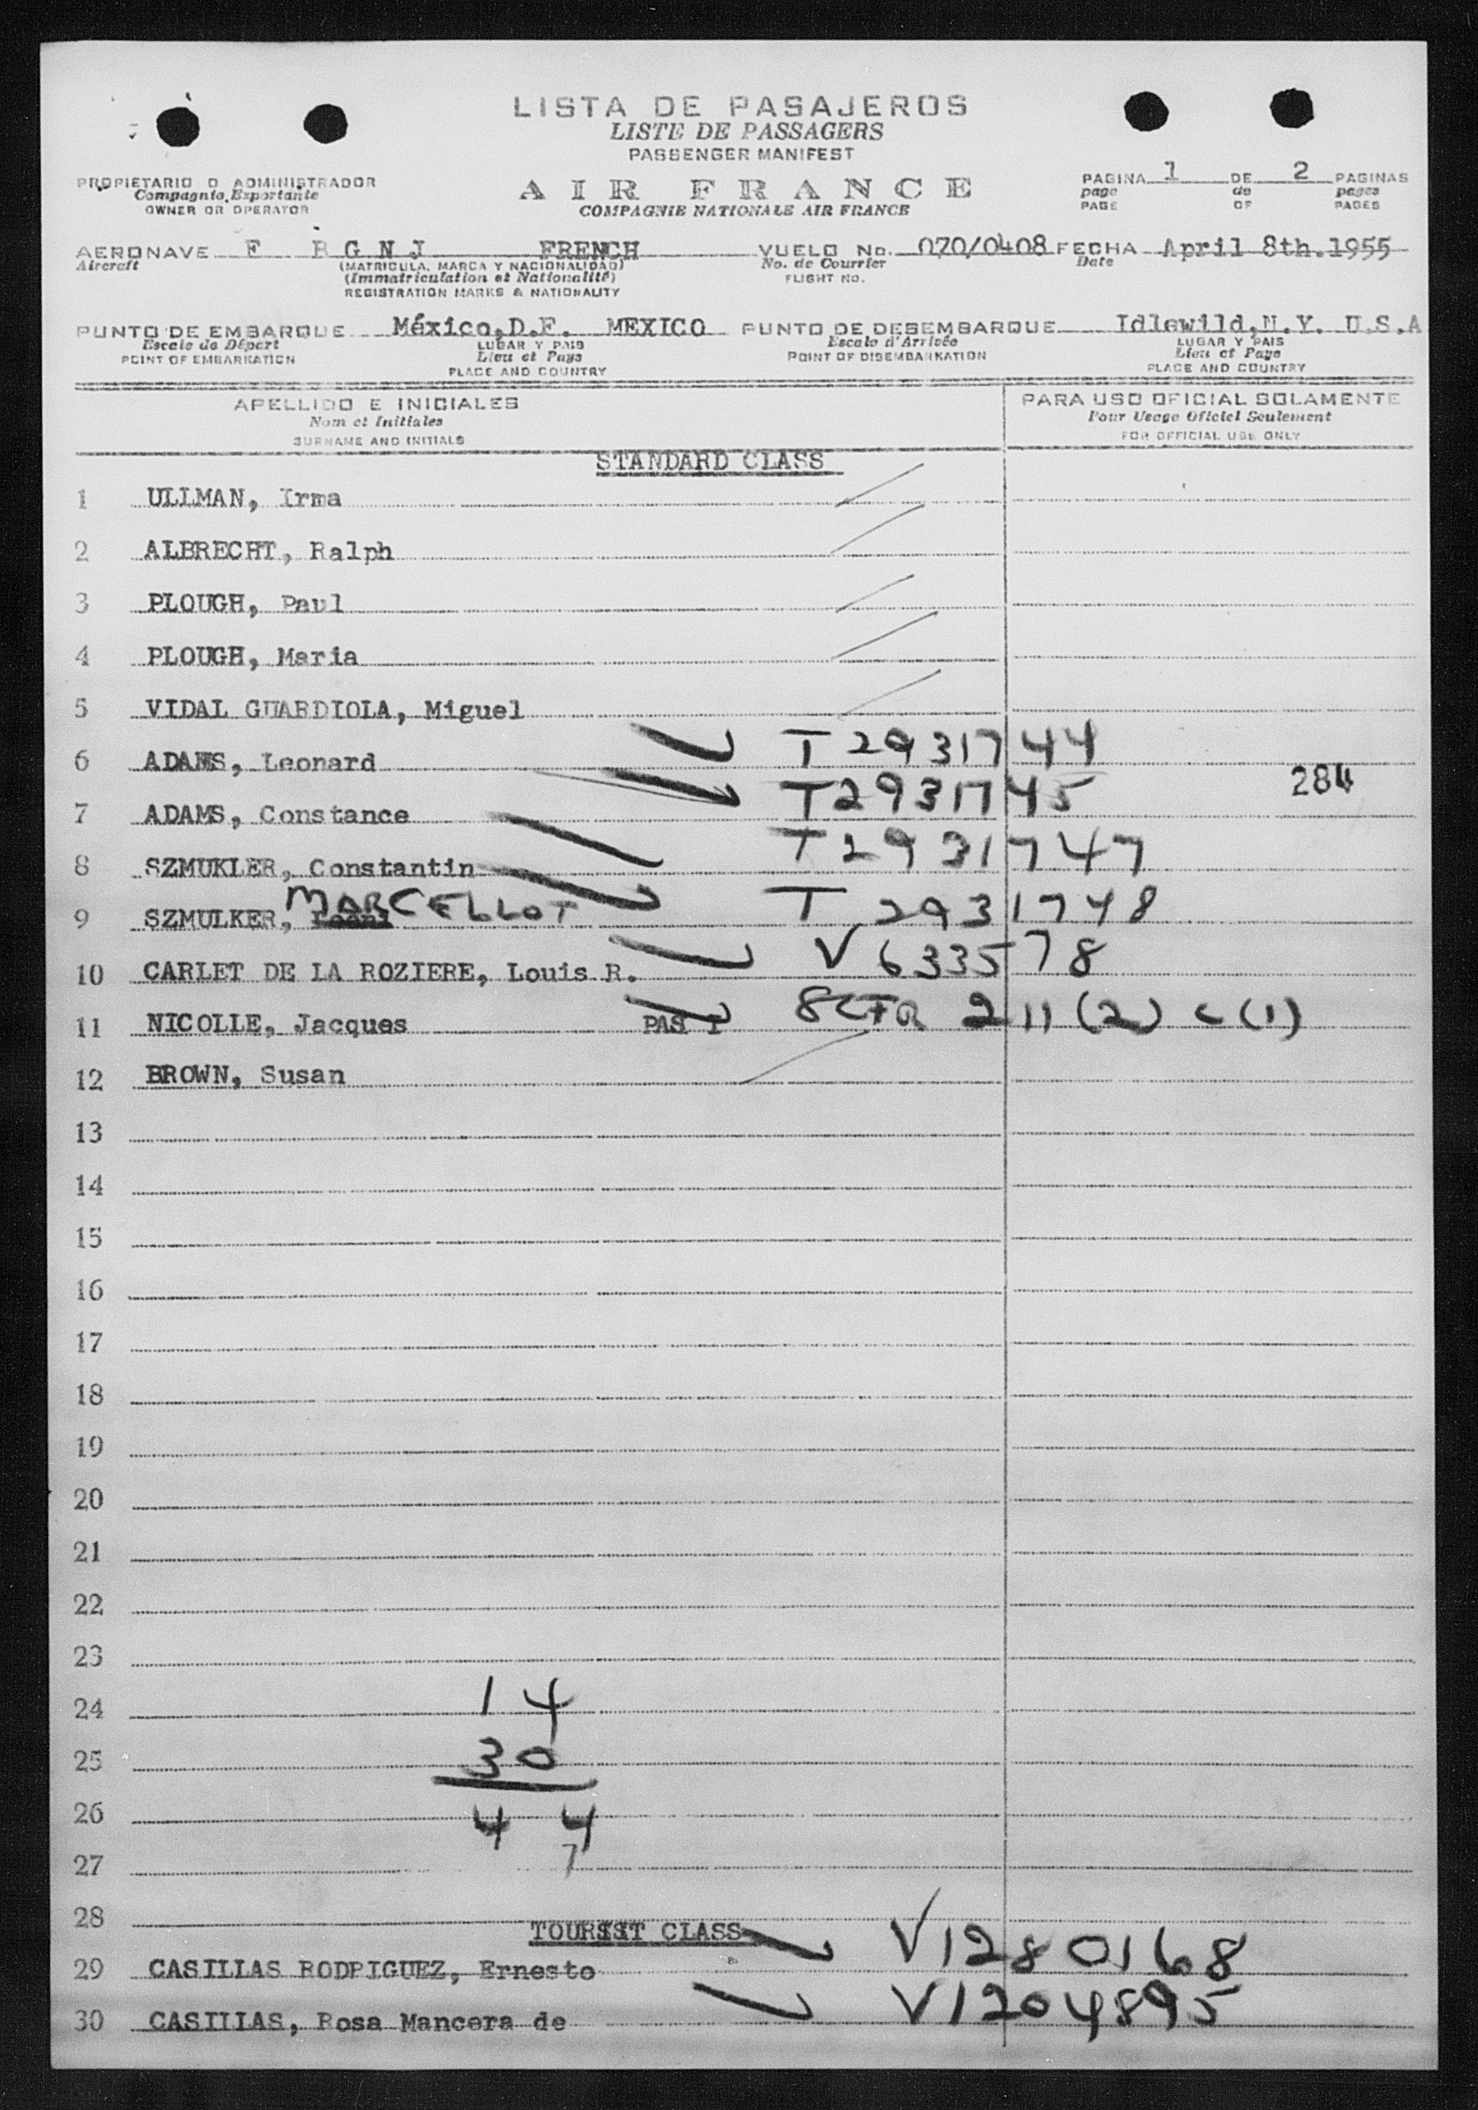 LISTA DE PASAJEROS
LISTE DE PASSAGERS
PASSENGER MANIFEST
PROPIETARIO O ADMINISTRADOR
Compagnie Exportante
OWNER OR OPERATOR
AIR FRANCE
COMPAGNIE NATIONALE AIR FRANCE
PAGINA 1 DE 2 PAGINAS
page de pages
PAGE OF PAGES
AERONAVE F B G N J FRENCH VUELO No. 070/0408 FECHA April 8th.1955
Aircraft (MATRICULA, MARCA Y NACIONALIDAD) No. de Courrier Date
(Immatriculation et Nationalité) FLIGHT NO.
REGISTRATION MARKS & NATIONALITY
PUNTO DE EMBARQUE México,D.F. MEXICO PUNTO DE DESEMBARQUE Idlewild,N.Y. U.S.A
Escale de Départ LUGAR Y PAIS Escale d'Arrivée LUGAR Y PAIS
POINT OF EMBARKATION Lieu et Pays POINT OF DISEMBARKATION Lieu et Pays
PLACE AND COUNTRY PLACE AND COUNTRY
APELLIDO E INICIALES PARA USO OFICIAL SOLAMENTE
Nom et Initiales Pour Usage Officiel Seulement
SURNAME AND INITIALS FOR OFFICIAL USE ONLY
STANDARD CLASS
1 ULLMAN, Irma
2 ALBRECHT, Ralph
3 PLOUGH, Paul
4 PLOUGH, Maria
5 VIDAL GUARDIOLA, Miguel
6 ADAMS, Leonard T 2931744
284
7 ADAMS, Constance T2931745
8 SZMUKLER, Constantin T 2931747
9 SZMULKER, MARCELLOT T 2931748
10 CARLET DE LA ROZIERE, Louis R. V 6335778
11 NICOLLE, Jacques PAS I 8CFR 211 (2) C (1)
12 BROWN, Susan
13
14
15
16
17
18
19
20
21
22
23
24 14
25 30
26 44
27 7
28
TOURIST CLASS
29 CASILLAS RODRIGUEZ, Ernesto V1280168
30 CASILLAS, Rosa Mancera de V1204895